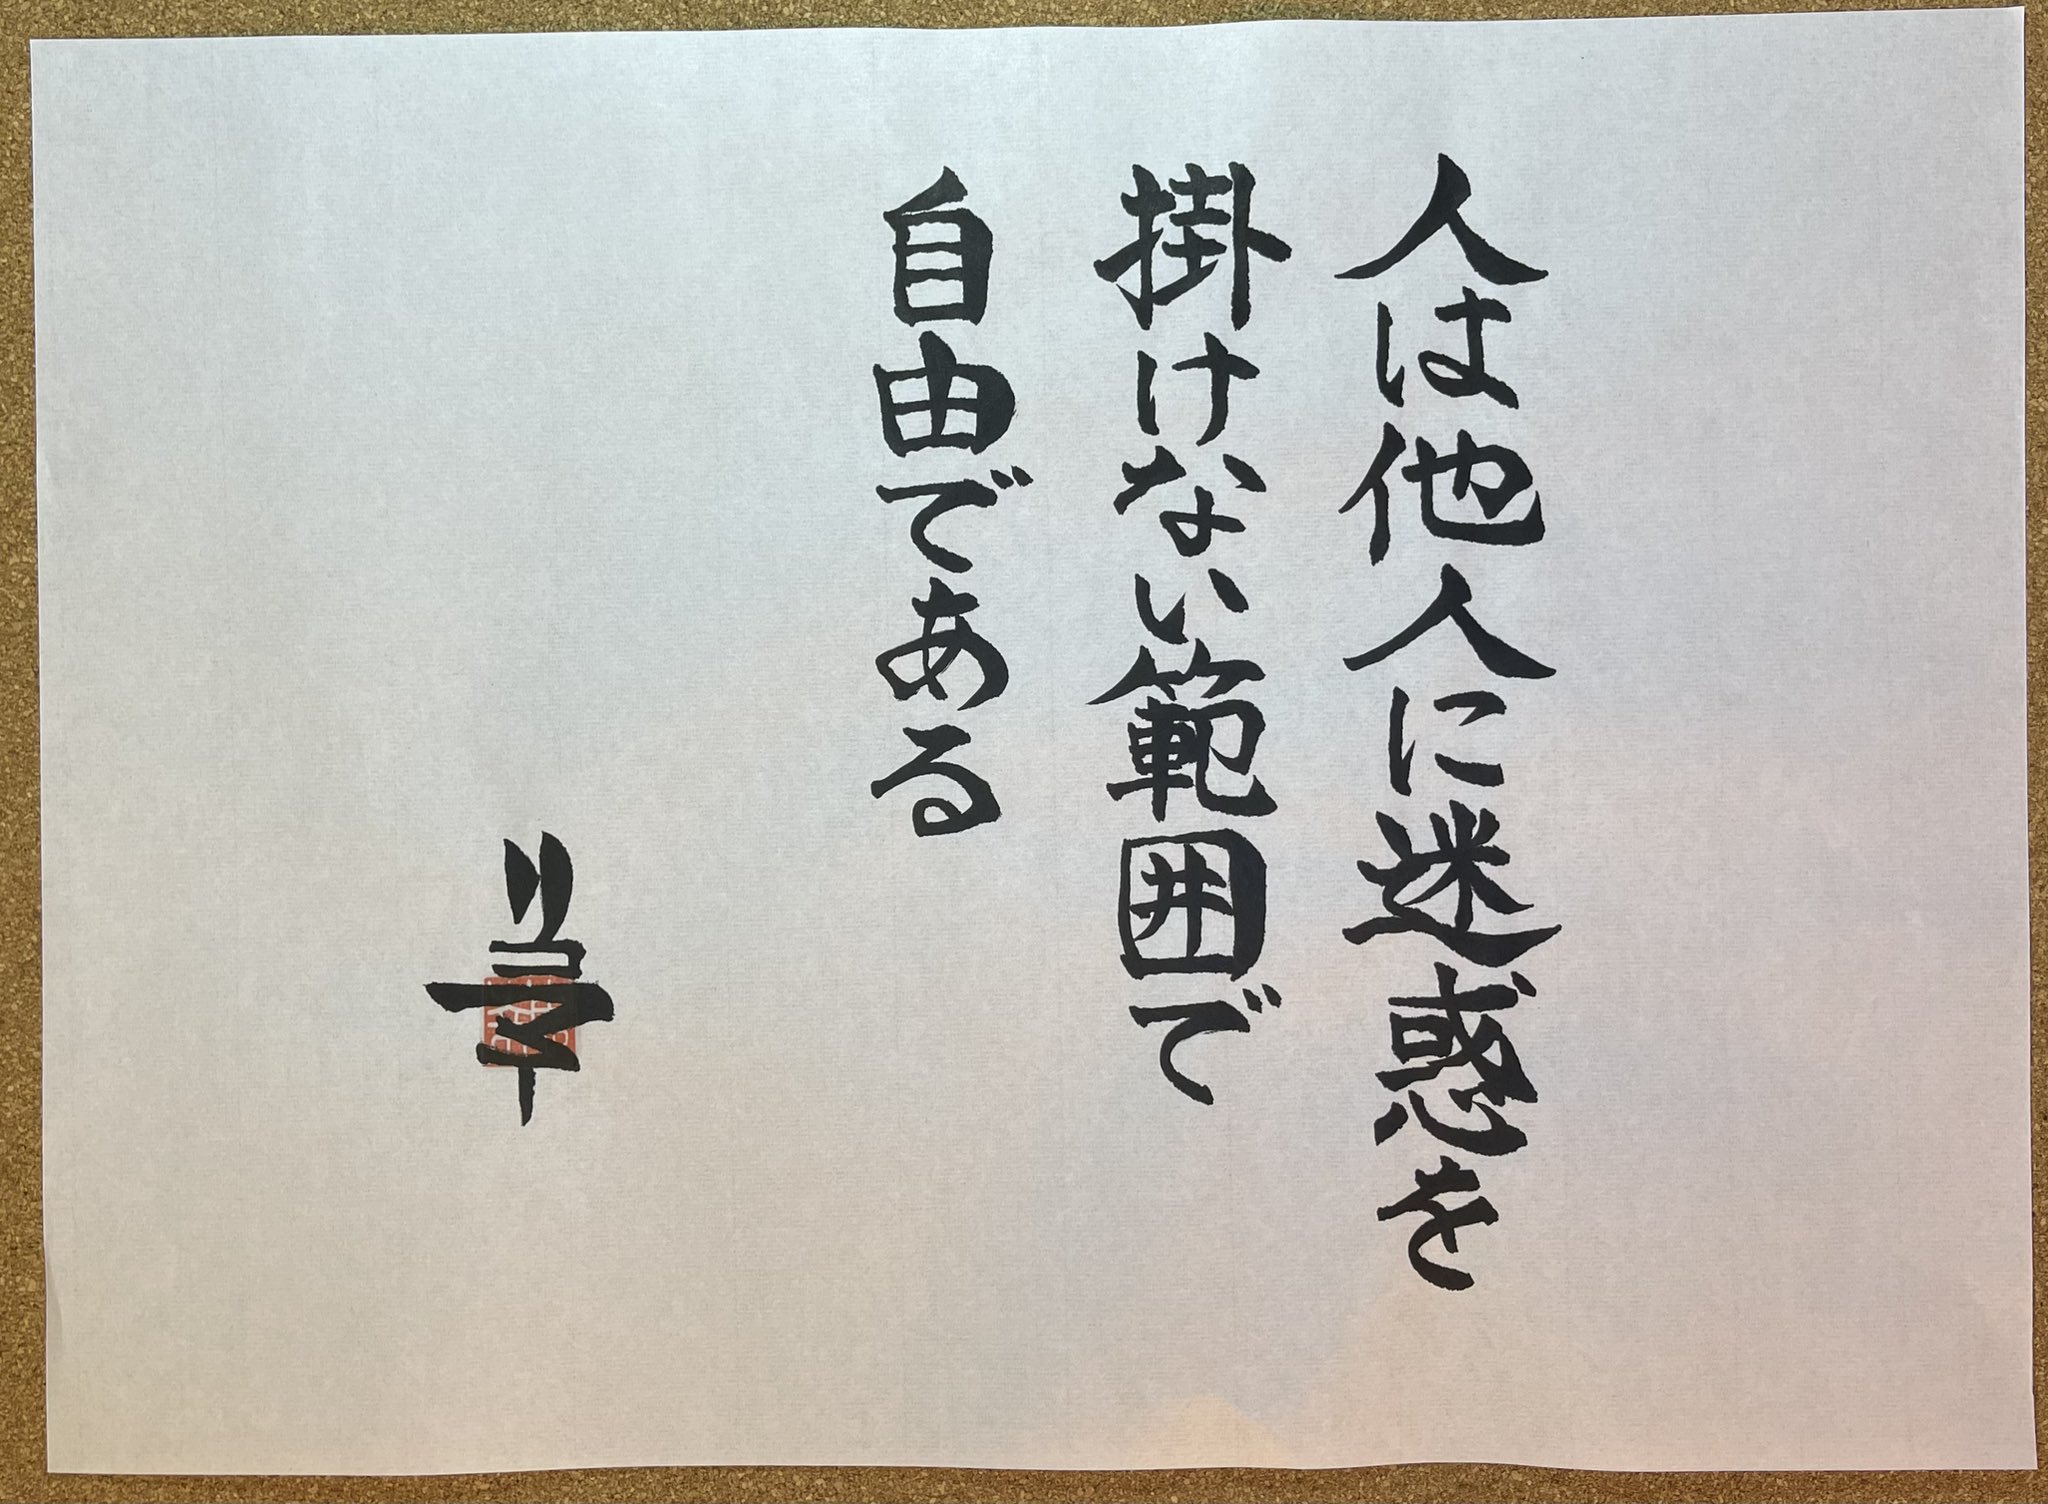 人は他人に迷惑を
掛けない範囲で
自由である